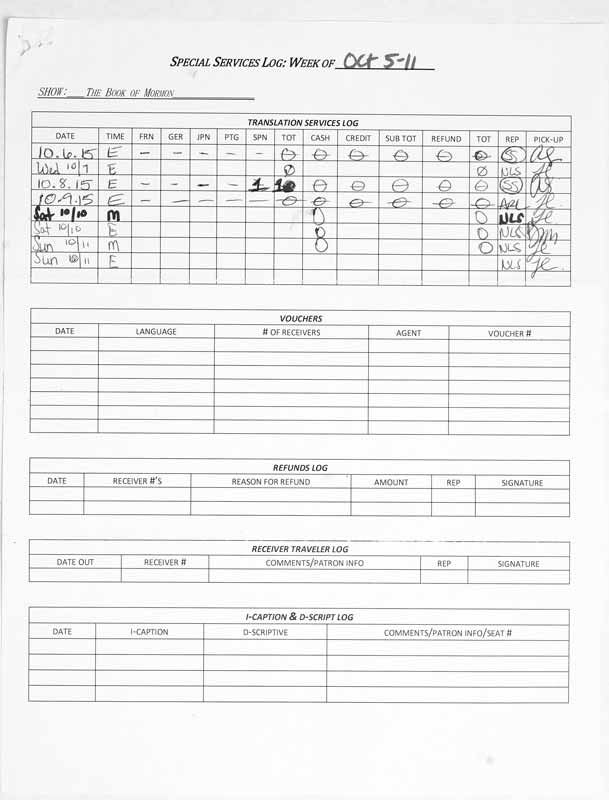 SPECIAL SERVICES LOG: WEEK OF Oct 5-11
SHOW: THE BOOK OF MORMON
TRANSLATION SERVICES LOG
DATE TIME FRN GER JPN PTG SPN TOT CASH CREDIT SUB TOT REFUND TOT REP PICK-UP
10.6.15 E - - - - - 0 0 0 0 0 0 SS
Wed 10/7 E 0 0 NLS
10.8.15 E - - - - 1 0 0 0 0 0 SS
10.9.15 E - - - - - 0 0 0 0 0 0 ARL
Sat 10/10 M 0 0 NLS
Sat 10/10 E 0 0 NLS
Sun 10/11 M 0 0 NLS
Sun 10/11 E NLS
VOUCHERS
DATE LANGUAGE # OF RECEIVERS AGENT VOUCHER #
REFUNDS LOG
DATE RECEIVER #'S REASON FOR REFUND AMOUNT REP SIGNATURE
RECEIVER TRAVELER LOG
DATE OUT RECEIVER # COMMENTS/PATRON INFO REP SIGNATURE
I-CAPTION & D-SCRIPT LOG
DATE I-CAPTION D-SCRIPTIVE COMMENTS/PATRON INFO/SEAT #